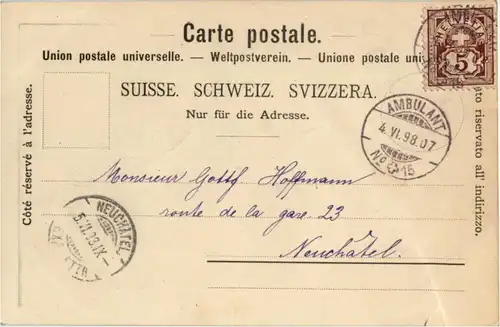 Carte postale.
Union postale universelle. — Weltpostverein. — Unione postale
SUISSE. SCHWEIZ. SVIZZERA.
Nur für die Adresse.
Côté réservé à l'adresse.
riservato all' indirizzo.
HELVETIA
5
AMBULANT
4.VI.98.07
No 15
Monsieur Gottf. Hoffmann
route de la gare 23
Neuchâtel
NEUCHATEL
5.VI.98.IX-